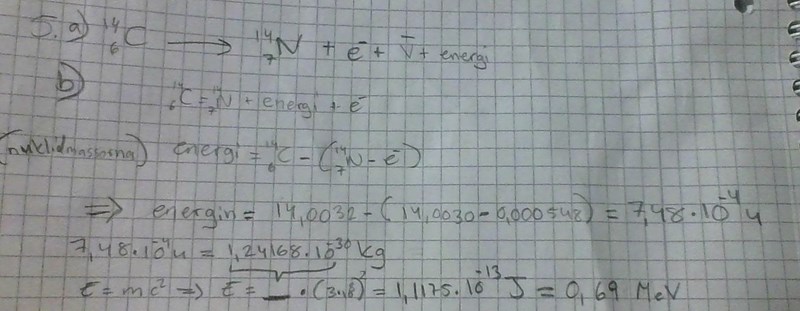 5. a) ¹⁴₆C → ¹⁴₇N + e⁻ + ν̄ + energi
b) ¹⁴₆C = ¹⁴₇N + energi + e⁻
(nuklidmassorna) energi = ¹⁴₆C - (¹⁴₇N - e⁻)
⇒ energin = 14,0032 - (14,0030 - 0,000548) = 7,48·10⁻⁴u
7,48·10⁻⁴u = 1,24168·10⁻³⁰ kg
E = mc² ⇒ E = __ · (3·10⁸)² = 1,1175·10⁻¹³ J = 0,69 MeV